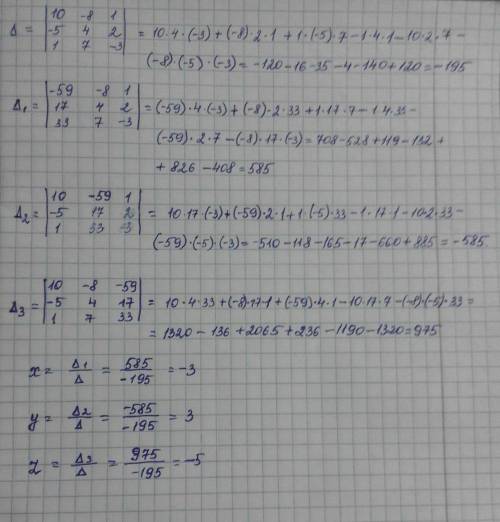 Δ = | 10 -8 1 |
| -5 4 2 | = 10·4·(-3)+(-8)·2·1+1·(-5)·7-1·4·1-10·2·7-
| 1 7 -3 |
(-8)·(-5)·(-3)=-120-16-35-4-140+120=-195
Δ₁ = | -59 -8 1 |
| 17 4 2 | = (-59)·4·(-3)+(-8)·2·33+1·17·7-1·4·33-
| 33 7 -3 |
(-59)·2·7-(-8)·17·(-3)=708-528+119-132+
+826-408=585
Δ₂ = | 10 -59 1 |
| -5 17 2 | = 10·17·(-3)+(-59)·2·1+1·(-5)·33-1·17·1-10·2·33-
| 1 33 -3 |
(-59)·(-5)·(-3)=-510-118-165-17-660+885=-585.
Δ₃ = | 10 -8 -59 |
| -5 4 17 | = 10·4·33+(-8)·17·1+(-59)·4·1-10·17·7-(-8)·(-5)·33=
| 1 7 33 |
= 1320-136+2065+236-1190-1320=975
x = Δ₁/Δ = 585/-195 = -3
y = Δ₂/Δ = -585/-195 = 3
z = Δ₃/Δ = 975/-195 = -5